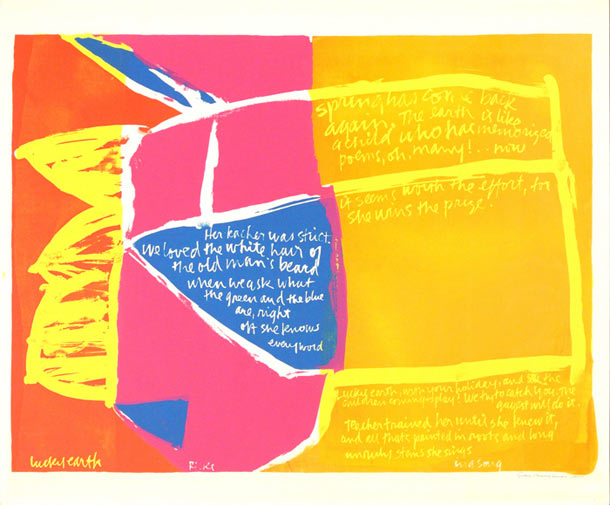 spring has come back
again. The earth is like
a child who has memorized
poems, oh, many! .. now
it seems worth the effort, for
she wins the prize.
Her teacher was strict.
we loved the white hair of
the old man's beard
when we ask what
the green and the blue
are, right
off she knows
every word
Lucky earth, with your holiday, and all the
children coming to play! We try to catch you. The
gayest will do it.
Teacher trained her until she knew it,
and all that's printed in roots and long
unruly stems she sings
lucky earth
Rilke
in a song